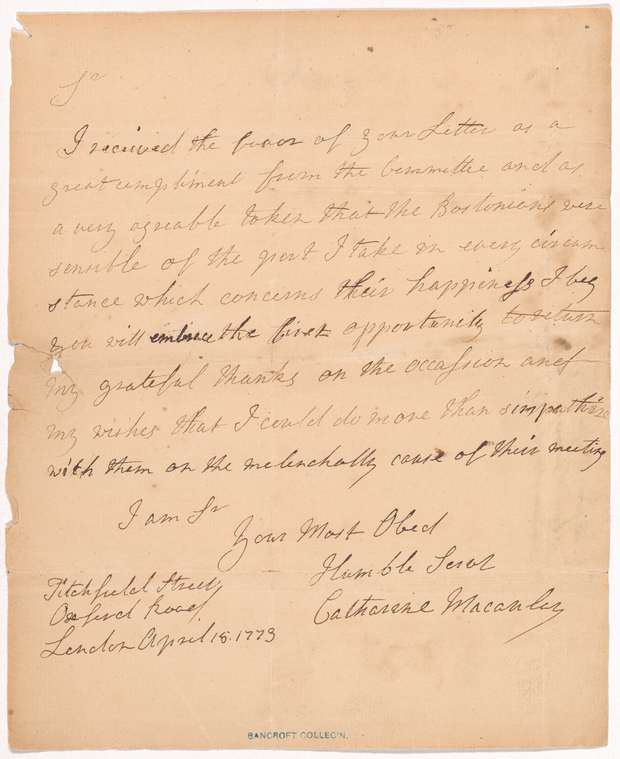 Sr
I received the favor of your Letter as a
great compliment from the Committee and as
a very agreable token that the Bostonians were
sensible of the part I take in every circum
stance which concerns their happiness I beg
you will embrace the first opportunity to return
my grateful thanks on the occassion and
my wishes that I could do more than simpathize
with them on the melancholly cause of their meeting
I am Sr
Your Most Obed
Humble Servt
Catharine Macaulay
Titchfield Street
Oxford Road
London April 18. 1773
BANCROFT COLLEC'N.